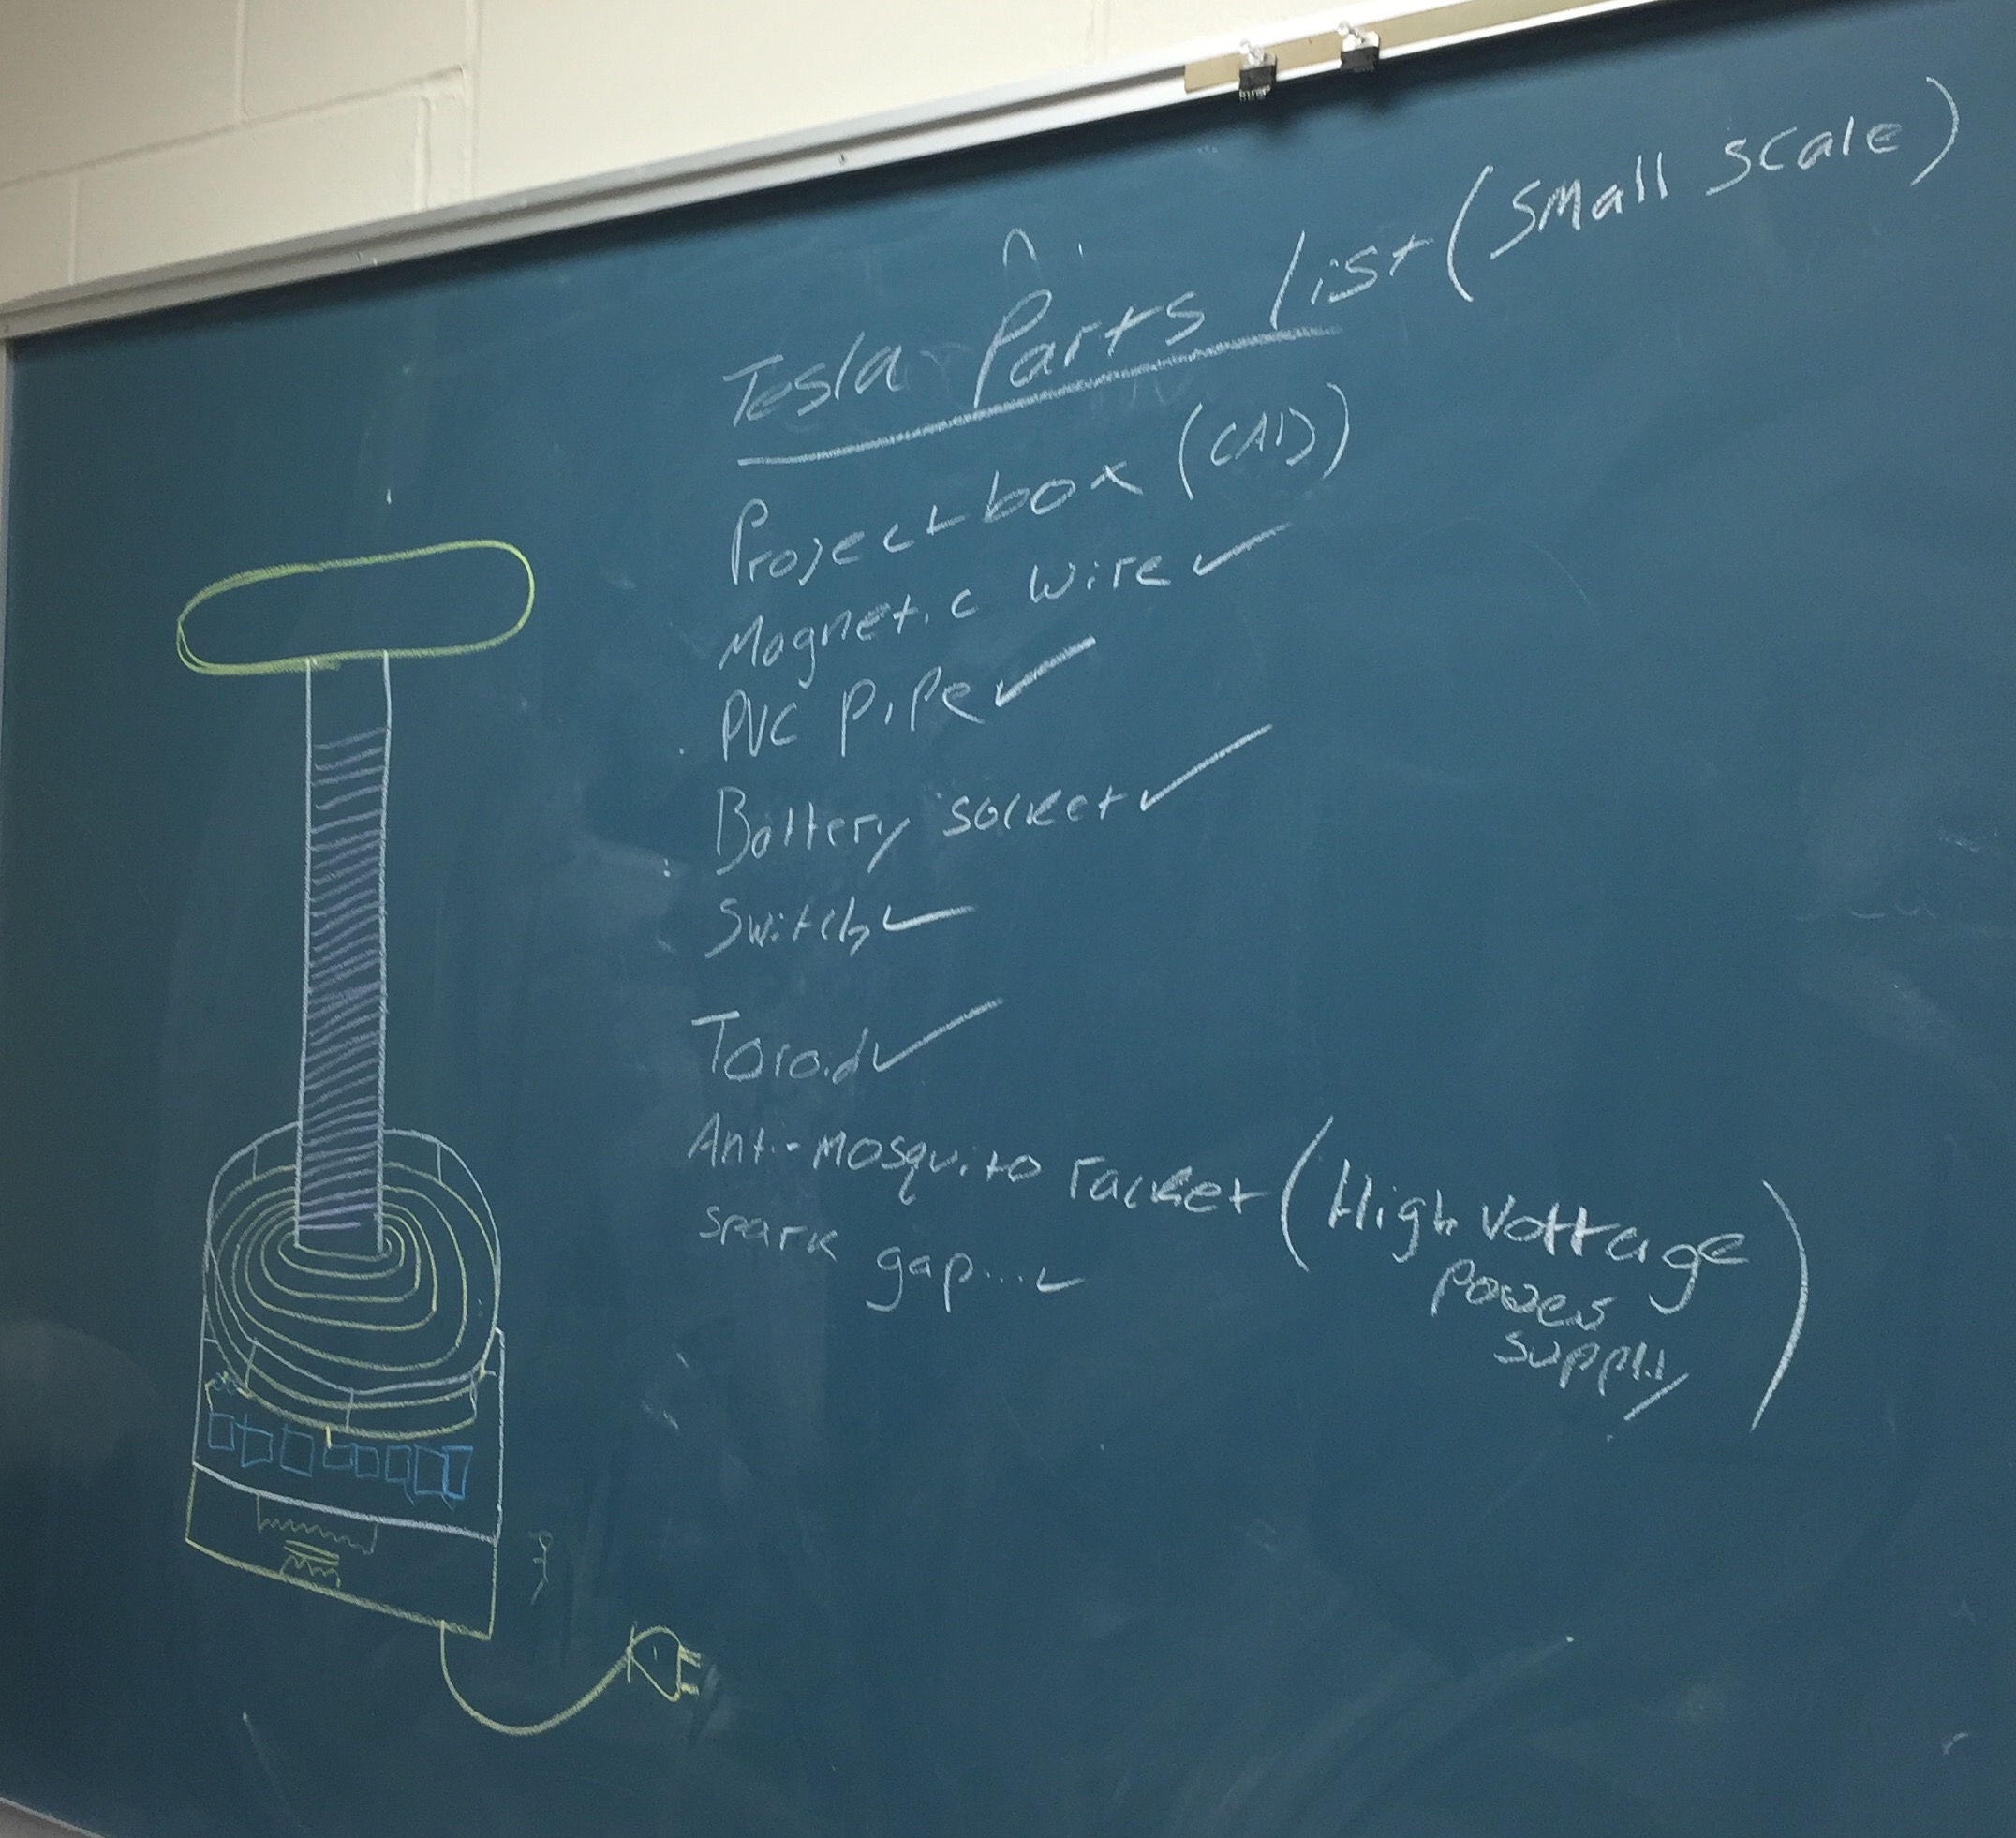 Tesla Parts list (small scale)
Project box (CAD)
Magnetic wire ✓
PVC pipe ✓
Battery socket ✓
Switch ✓
Toroid ✓
Anti-mosquito racket (High Voltage
power
supply)
spark gap... ✓